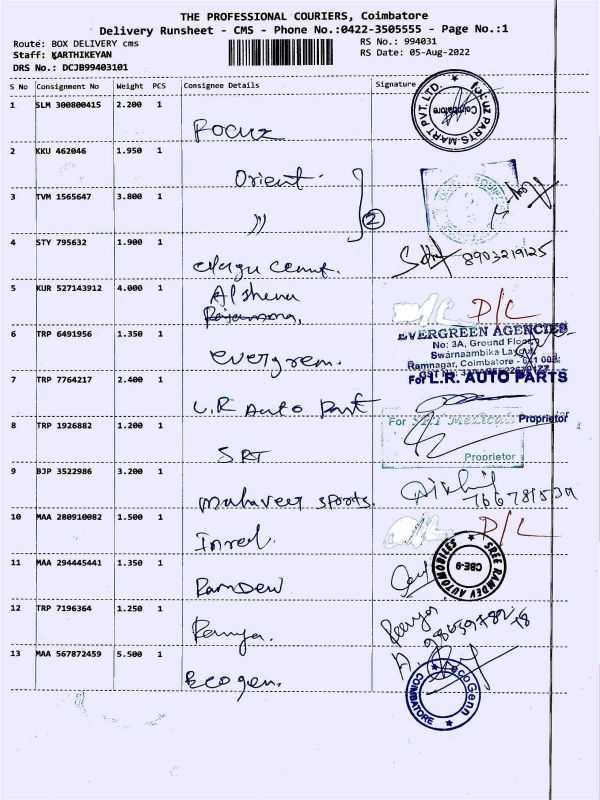 THE PROFESSIONAL COURIERS, Coimbatore
Delivery Runsheet - CMS - Phone No.:0422-3505555 - Page No.:1
Route: BOX DELIVERY cms
RS No.: 994031
Staff: KARTHIKEYAN
RS Date: 05-Aug-2022
DRS No.: DCJB99403101
S No Consignment No Weight PCS Consignee Details Signature
1 SLM 300800415 2.200 1
Focuz
FOCUZ PARTS MART PVT. LTD.
Coimbatore
2 KKU 462046 1.950 1
Orient
3 TVM 1565647 3.800 1
〃 2
4 STY 795632 1.900 1
8903219125
5 KUR 527143912 4.000 1
Alshena
D/C D/L
6 TRP 6491956 1.350 1
evergreen.
EVERGREEN AGENCIES
No: 3A, Ground Floor,
Swarnaambika Layout,
Ramnagar, Coimbatore - 641 009.
7 TRP 7764217 2.400 1
L.R Auto Part
For L.R. AUTO PARTS
Proprietor
8 TRP 1926882 1.200 1
SRT
For SRI Medicals
Proprietor
9 BJP 3522986 3.200 1
Mahaveer sports.
10 MAA 280910082 1.500 1
D/L
11 MAA 294445441 1.350 1
Ramdev
SREE RAMDEV AUTOMOBILES
CBE-9
12 TRP 7196364 1.250 1
Ramya.
Ramya
13 MAA 567872459 5.500 1
Ecogen.
EcoGenn
COIMBATORE